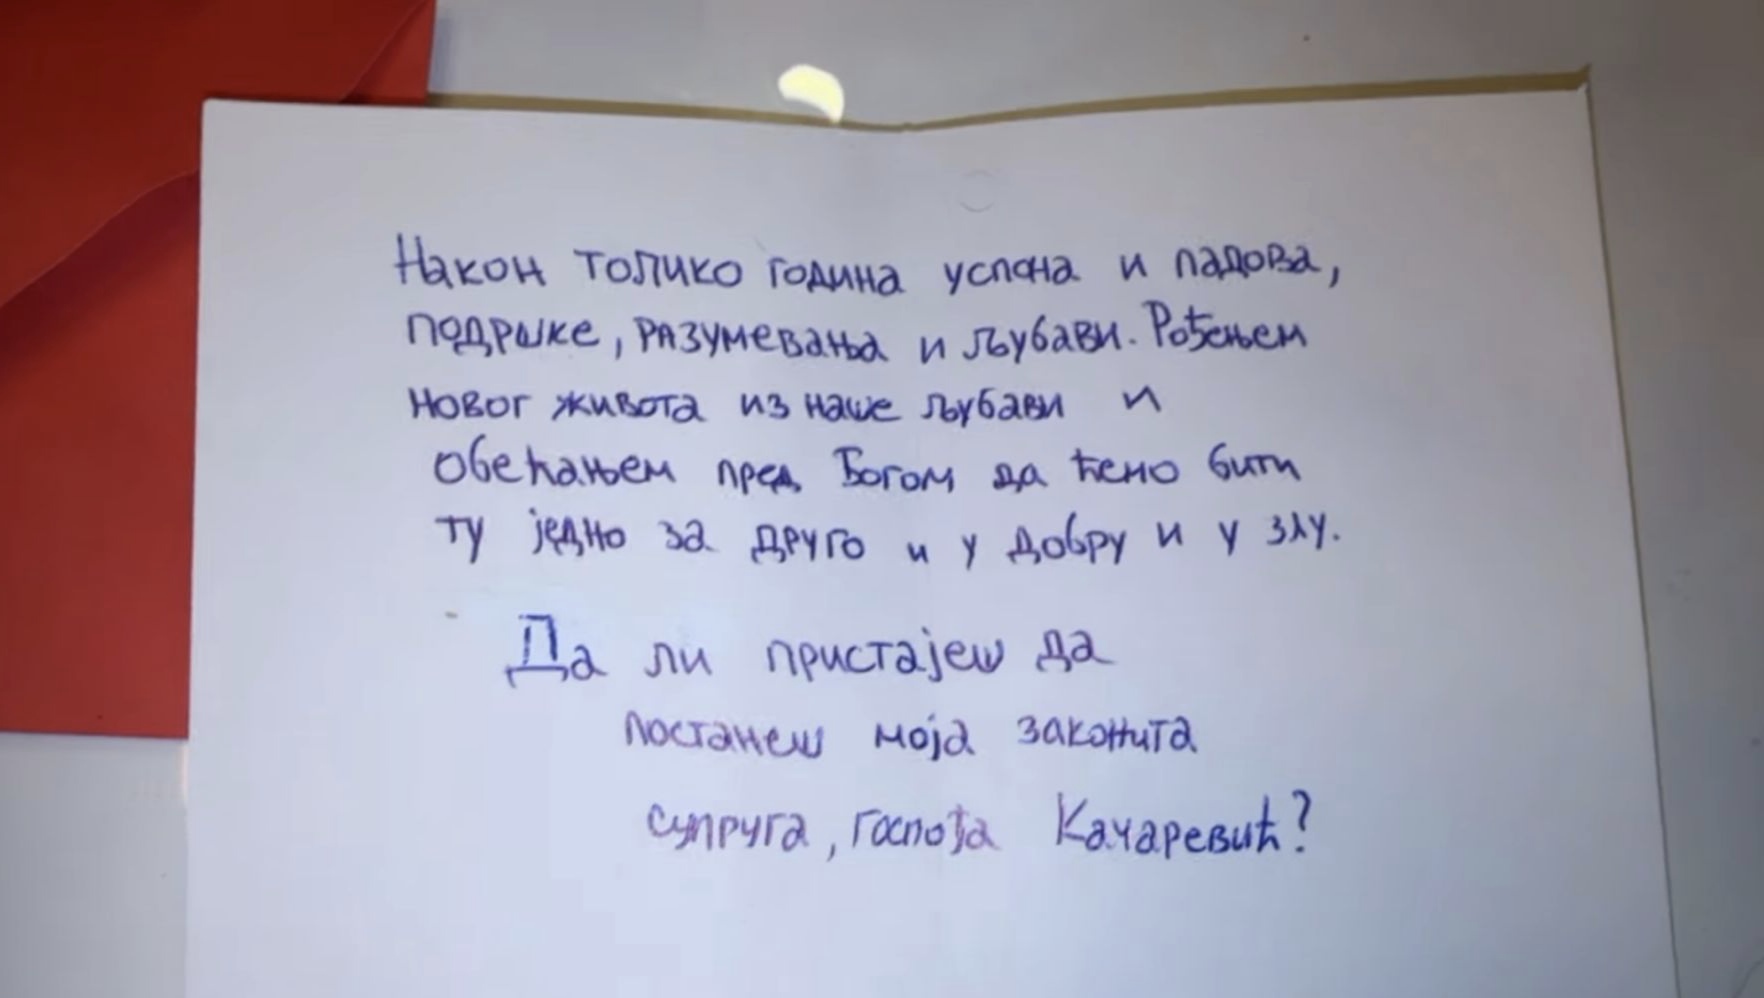 Након толико година успона и падова,
подршке, разумевања и љубави. Рођењем
новог живота из наше љубави и
обећањем пред Богом да ћемо бити
ту једно за друго и у добру и у злу.
Да ли пристајеш да
постанеш моја законита
супруга, госпођа Качаревић?